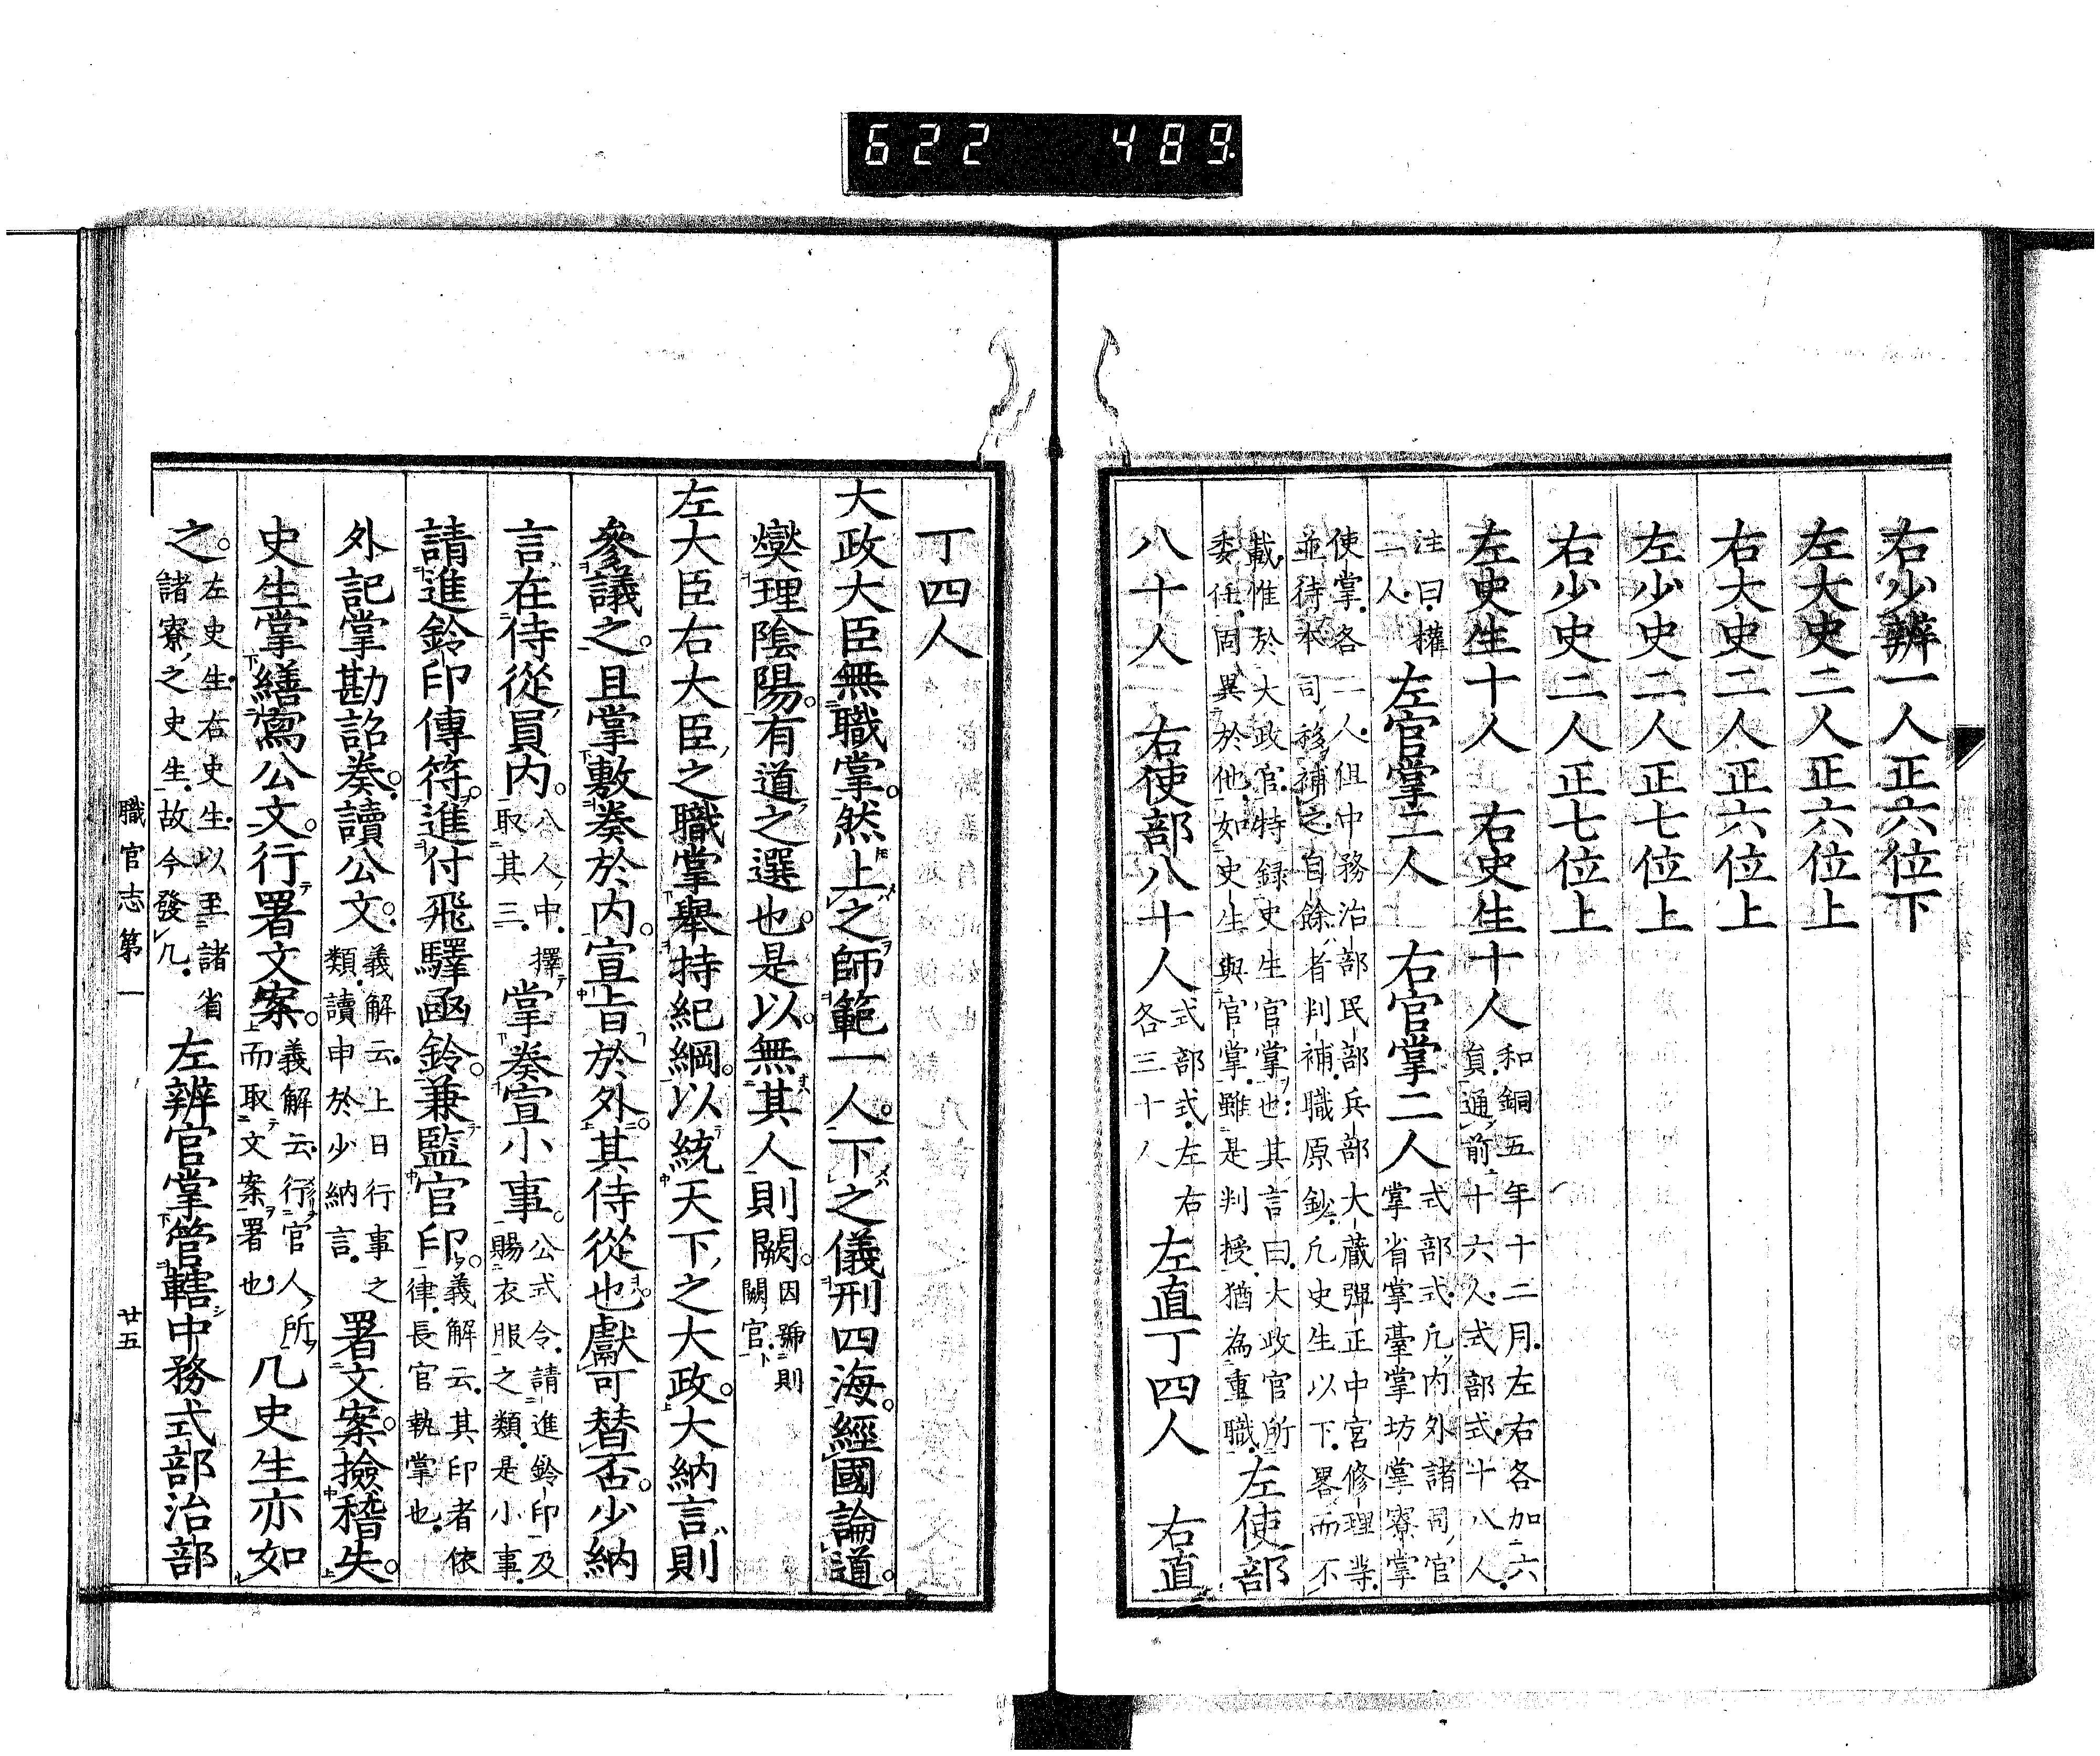 622 489
右少辨一人正六位下
左大史二人正六位上
右大史二人正六位上
左少史二人正七位上
右少史二人正七位上
左史生十人 右史生十人 和銅五年十二月左右各加六
員通前十六人式部式十八人
注曰權
二人 左官掌二人 右官掌二人 式部式凡内外諸司官
掌省掌臺掌坊掌寮掌
使掌各二人但中務治部民部兵部大藏彈正中宮修理等
並待本司移補之自餘者判補職原鈔凡史生以下畧而不
載惟於大政官特録史生官掌也其言曰大政官所
委任固異於他如史生與官掌雖是判授猶為重職 左使部
八十人 右使部八十人 式部式左右
各三十人 左直丁四人 右直
丁四人
大政大臣無職掌然上之師範一人下之儀刑四海經國論道
燮理陰陽有道之選也是以無其人則闕 因號則
闕官
左大臣右大臣之職掌舉持紀綱以統天下之大政大納言則
參議之且掌敷奏於内宣旨於外其侍從也獻可替否少納
言在侍從員内 八人中擇
取其三 掌奏宣小事 公式令請進鈴印及
賜衣服之類是小事
請進鈴印傳符進付飛驛函鈴兼監官印 義解云其印者依
律長官執掌也
外記掌勘詔奏讀公文 義解云上日行事之
類讀申於少納言 署文案撿稽失
史生掌繕寫公文行署文案 義解云行官人所
而取文案署也 凡史生亦如
之 左史生右史生以至諸省
諸寮之史生故今發凡 左辨官掌管轄中務式部治部
職官志第一 廿五